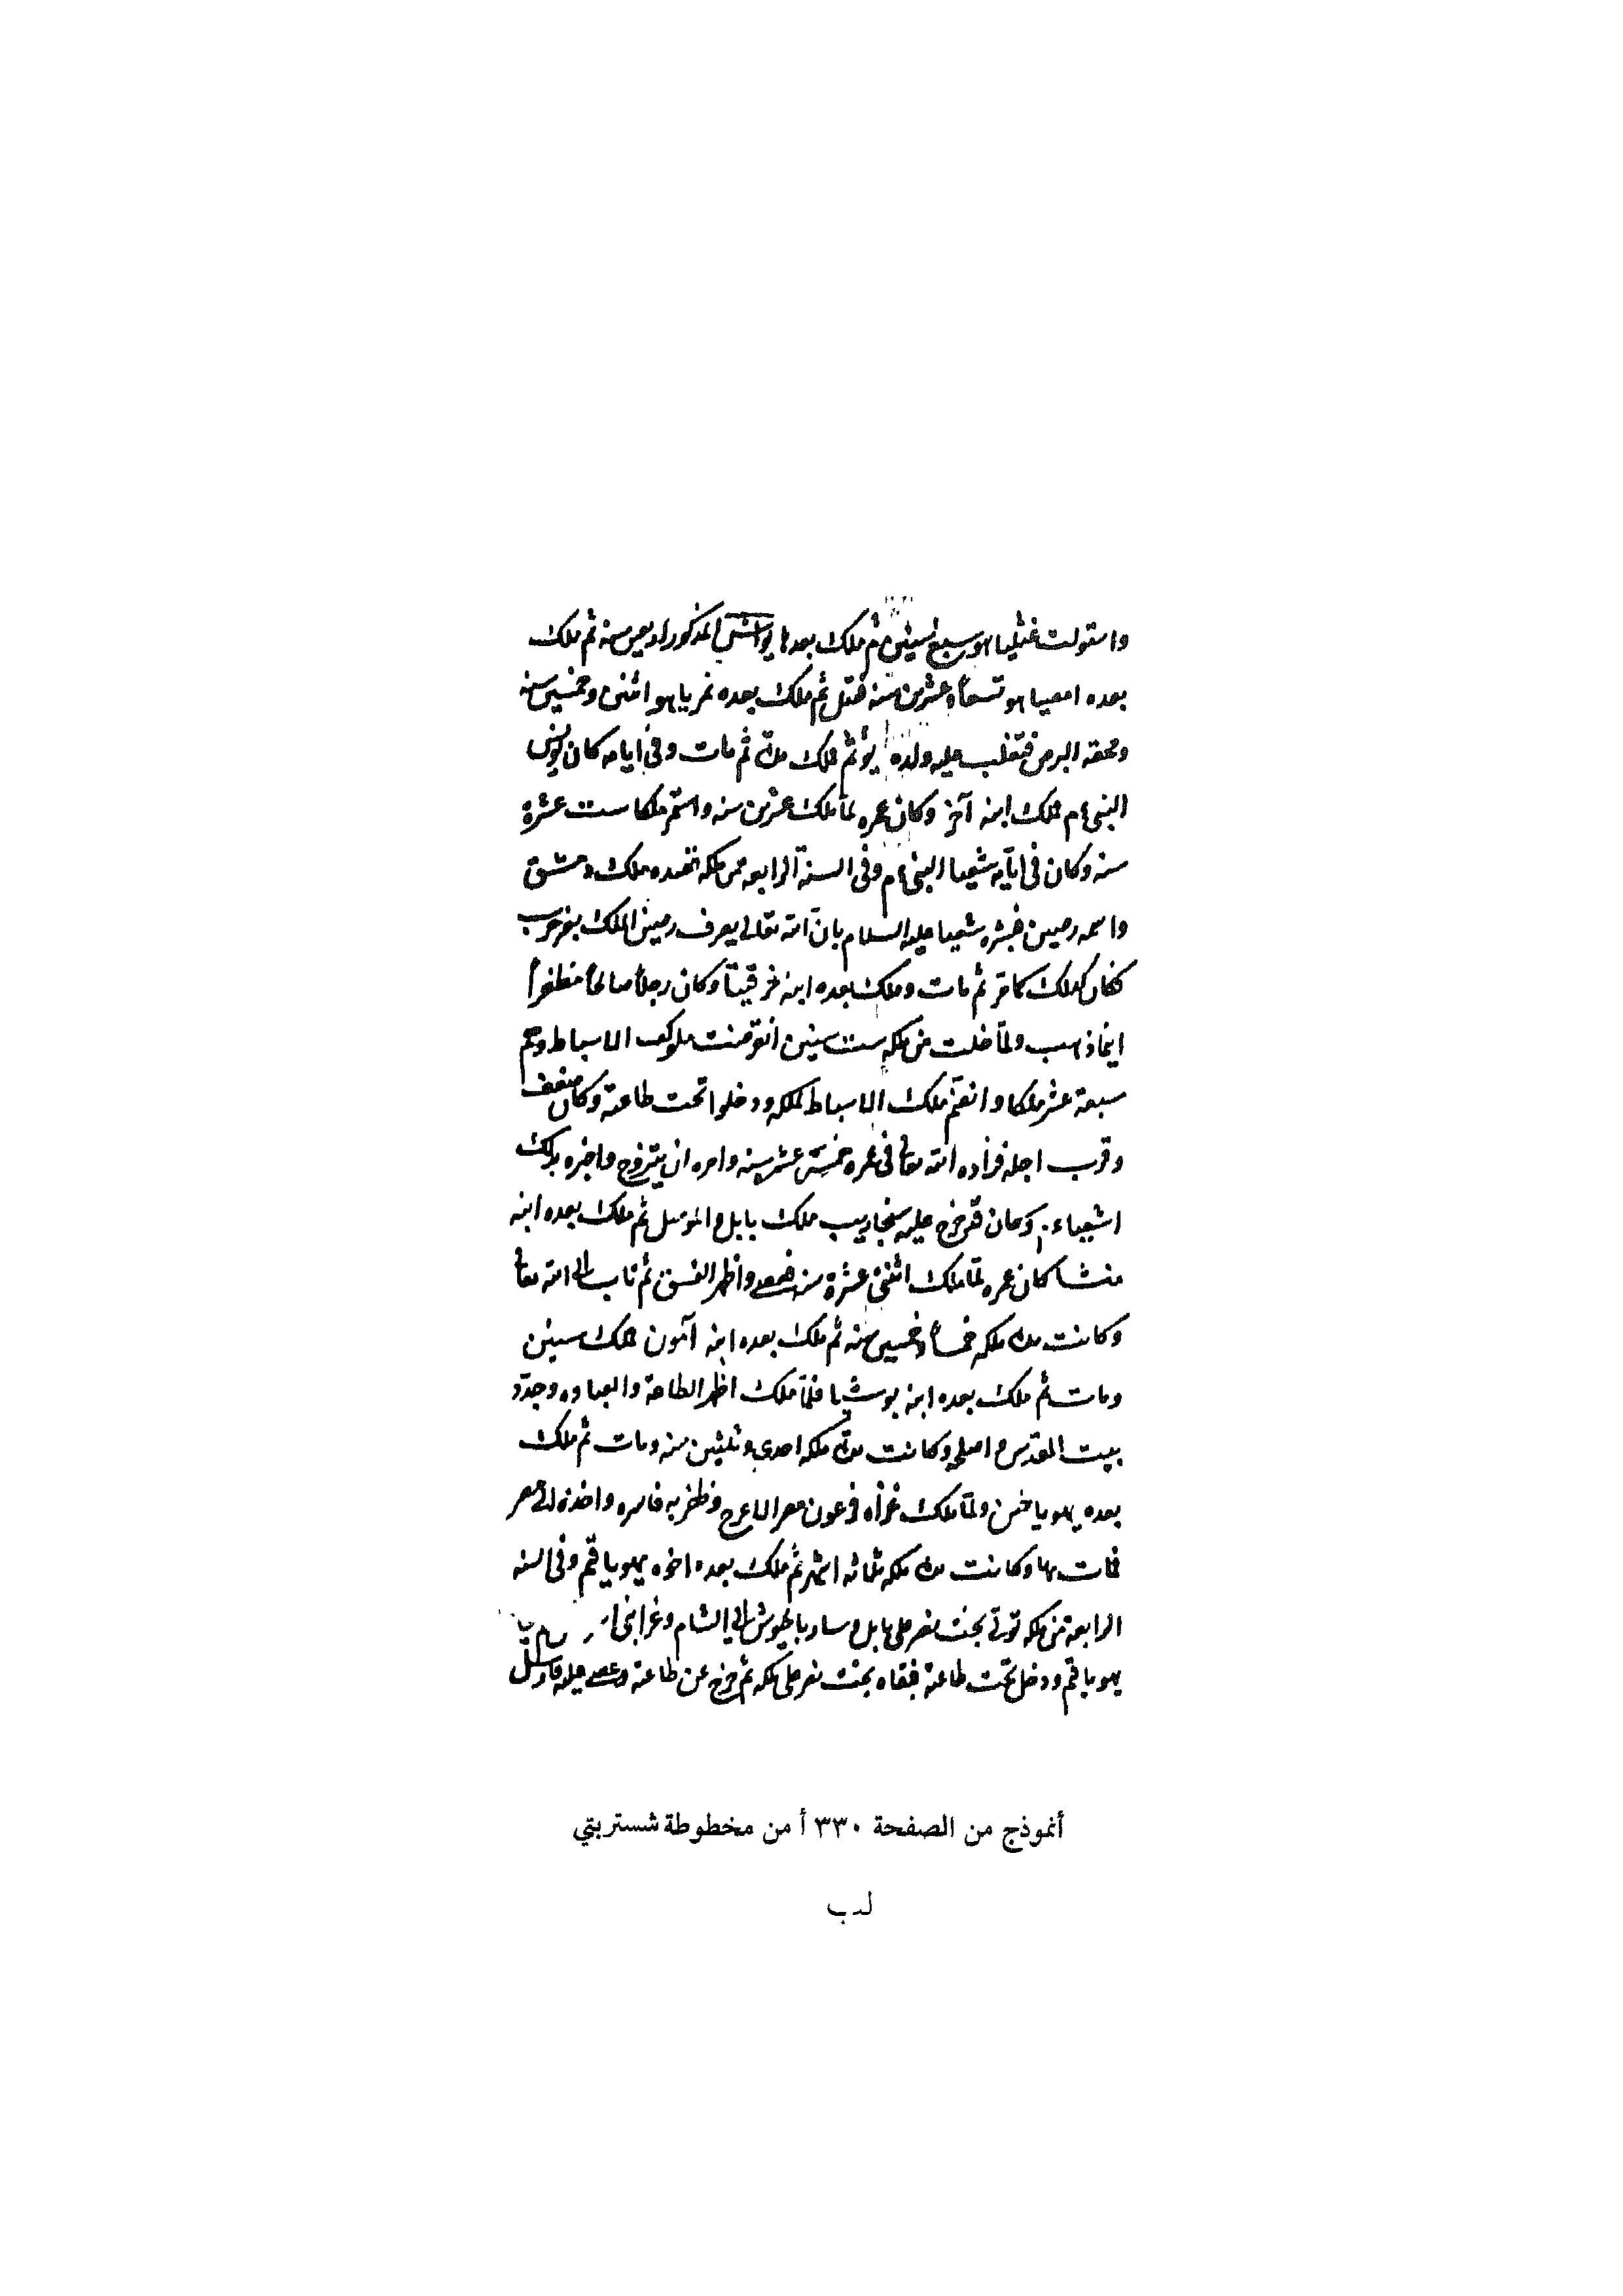 واستولت عثليا هو سبع سنين ثم ملك بعدها يواش المذكور اربعين سنه ثم ملك
بعده امصيا هو تسعاً وعشرين سنه فقتل ثم ملك بعده عزياهو اثنى وخمسين سنه
ولحقه البرص فتغلب عليه ولده يؤثم ملك مدة ثم مات وفى ايامه كان يونس
النبى ءم ملك ابنه آحز وكان عمره لما ملك عشرين سنه واستمر ملكا ست عشرة
سنه وكان فى ايامه شعيا النبى ءم وفى السنة الرابعه من ملكه قصده ملك دمشق
واسمه رصين فبشره شعيا عليه السلام بان الله تعالى يصرف رصين الملك بغير حرب
فكان كذلك ثم مات وملك بعده ابنه حزقيا وكان رجلاً صالحاً مظفراً
ولما خلت من ملكه ست سنين انقرضت ملوك الاسباط وهم
سبعة عشر ملكا وانضم ملك الاسباط لملكه ودخلوا تحت طاعته وكان ضعف
وقرب اجله فزاده الله تعا فى عمره خمسة عشر سنه وامره ان يتزوج واخبره بذلك
اشعياء وكان قد خرج عليه سنحاريب ملك بابل والموصل ثم ملك بعده ابنه
منشا كان عمره لما ملك اثنى عشرة سنه فعصى واظهر الفسق ثم تاب الى الله تعا
وكانت مدة ملكه خمساً وخمسين سنه ثم ملك بعده ابنه آمون ملك سنين
ومات ثم ملك بعده ابنه يوشيا فلما ملك اظهر الطاعة والعباده وجدد
بيت المقدس واصلحه وكانت مدة ملكه احدى وثلثين سنه ومات ثم ملك
بعده يهوياخين ولما ملك غزاه فرعون مصر الاعرج وظفر به فاسره واخذه الى مصر
فمات بها وكانت مدة ملكه ثلاثه اشهر ثم ملك بعده اخوه يهوياقم وفى السنه
الرابعة من ملكه تولى بخت نصر على بابل وسار بالجيوش الى الشام وغزا بنى
يهوياقم ودخل تحت طاعته فبقاه بخت نصر على ملكه ثم خرج عن طاعته وعصى عليه فارسل
أنموذج من الصفحة ٣٣٠ أ من مخطوطة شستربتي
لـب